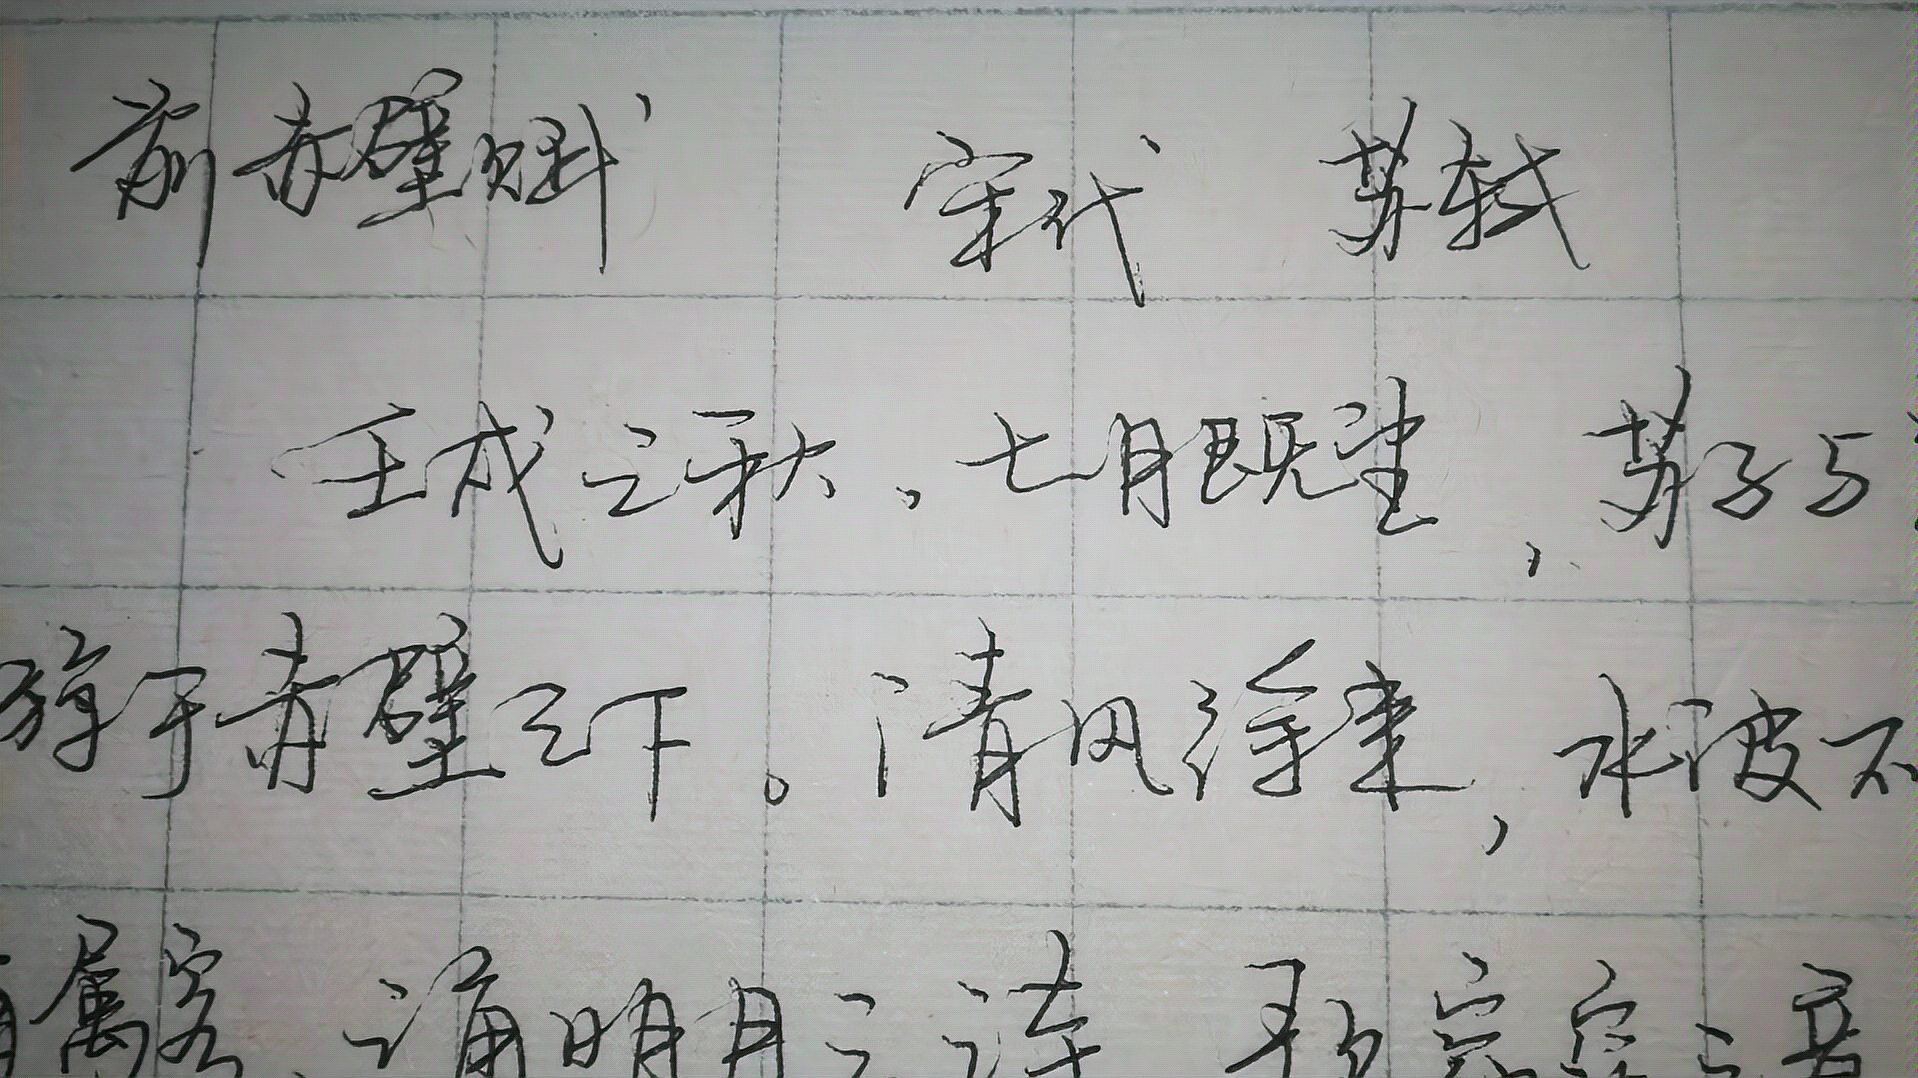 前赤壁赋 宋代 苏轼
壬戌之秋，七月既望，苏子与
游于赤壁之下。清风徐来，水波不
属客 诵明月之诗 歌窈窕之章